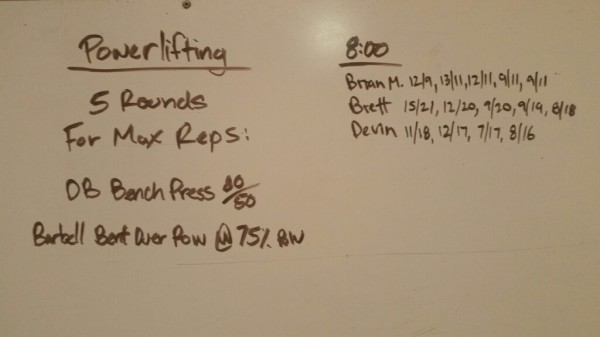 Powerlifting
5 Rounds
For Max Reps:
DB Bench Press 80/50
Barbell Bent Over Row @ 75% BW
8:00
Brian M. 12/9, 13/11, 12/11, 9/11, 9/11
Brett 15/21, 12/20, 9/20, 9/19, 8/18
Devin 11/18, 12/17, 7/17, 8/16